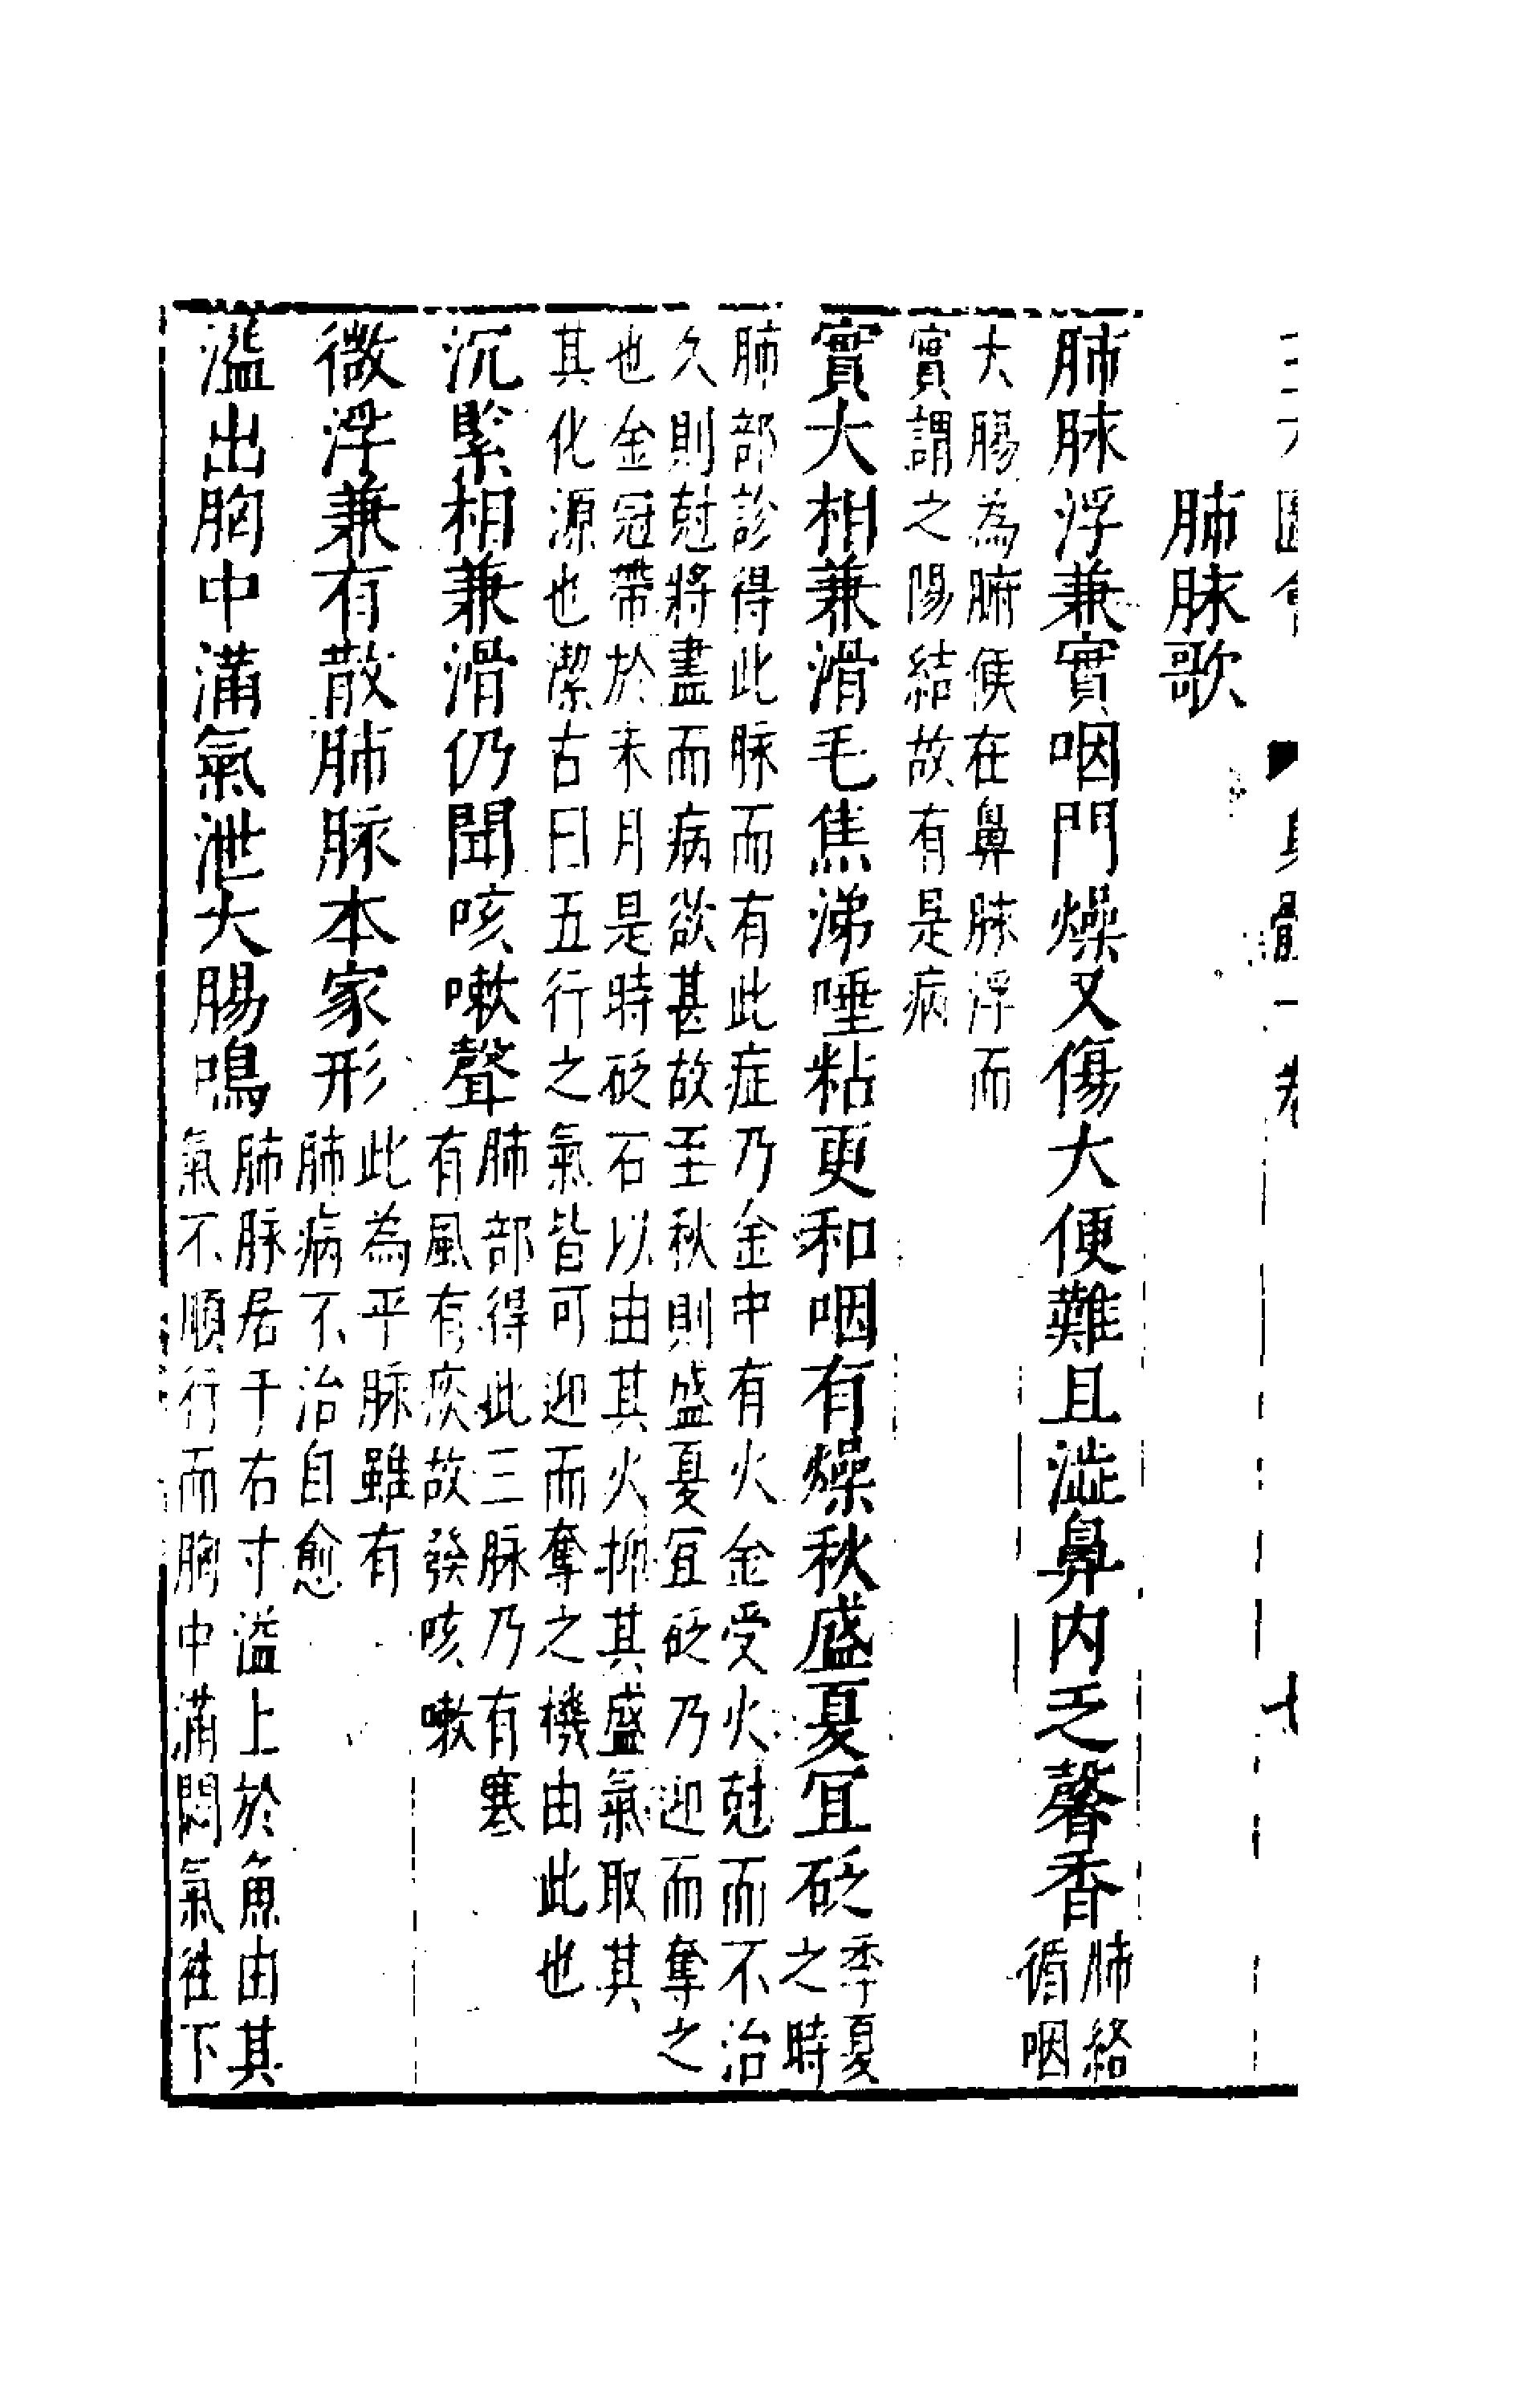 肺脉歌
肺脉浮兼實咽門燥又傷大便難且澁鼻内乏馨香肺絡
循咽
大腸為腑候在鼻脉浮而
實謂之陽結故有是病
實大相兼滑毛焦涕唾粘更和咽有燥秋盛夏宜砭季夏
之時
肺部診得此脉而有此症乃金中有火金受火尅而不治
久則尅將盡而病欲甚故至秋則盛夏宜砭乃迎而奪之
也金冠帶於未月是時砭石以由其火抑其盛氣取其
其化源也潔古曰五行之氣皆可迎而奪之機由此也
沉緊相兼滑仍聞咳嗽聲肺部得此三脉乃有寒
有風有痰故發咳嗽
微浮兼有散肺脉本家形此為平脉雖有
肺病不治自愈
溢出胸中滿氣泄大腸鳴肺脉居于右寸溢上於魚由其
氣不順行而胸中滿悶氣往下